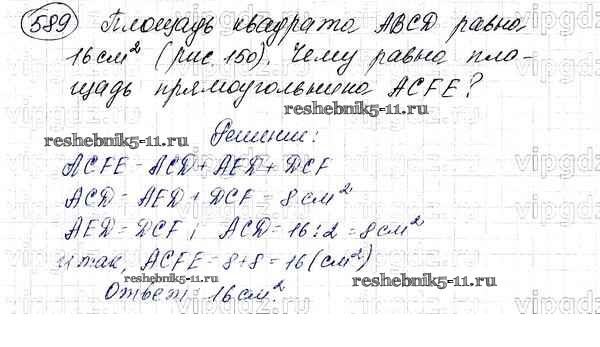 589 Площадь квадрата ABCD равна
16 см² (рис. 150). Чему равна пло-
щадь прямоугольника ACFE?
reshebnik5-11.ru
reshebnik5-11.ru
Решение:
ACFE = ACD + AED + DCF
ACD = AED + DCF = 8 см²
AED = DCF; ACD = 16:2 = 8 см²
итак, ACFE = 8+8 = 16 (см²)
reshebnik5-11.ru
reshebnik5-11.ru
Ответ: 16 см².